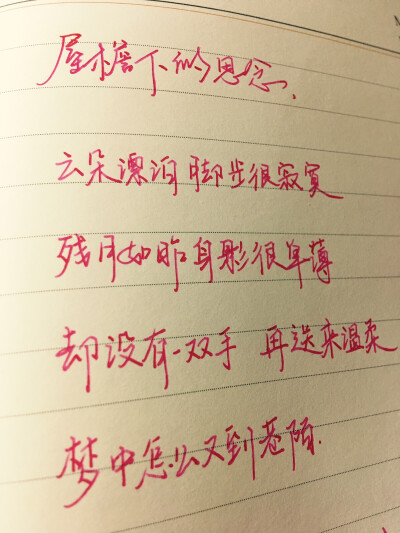 屋檐下的思念、
云朵漂泊脚步很寂寞
残月如昨身影很单薄
却没有一双手 再送来温柔
梦中怎么又到巷陌.